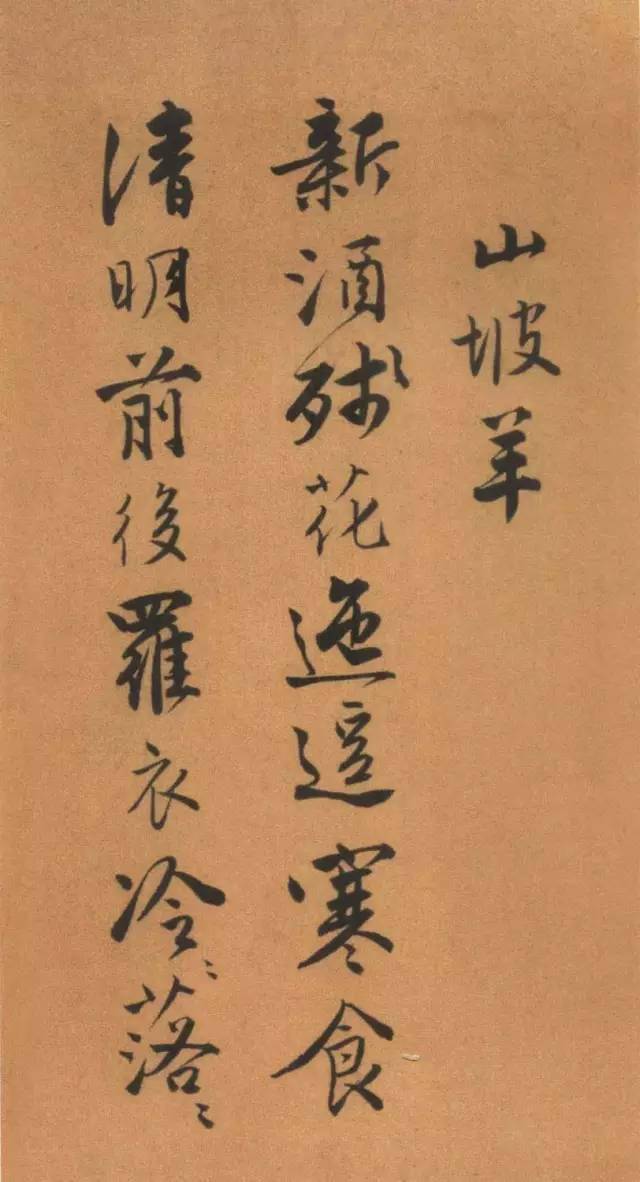 山坡羊
新酒残花迤逗寒食
清明前後羅衣冷〻落〻